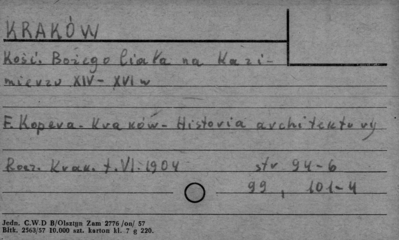 KRAKÓW
Kość. Bożego Ciała na Kazi-
mierzu XIV - XVI w
F. Kopera. Kraków - Historia architektury
Rocz. Krak. t. VI. 1904 str 94-6
99, 101-4
Jedn. C.W.D B/Olsztyn Zam 2776/oo/ 57
Błtk. 2563/57 10.000 szt. karton kl. 7 g 220.